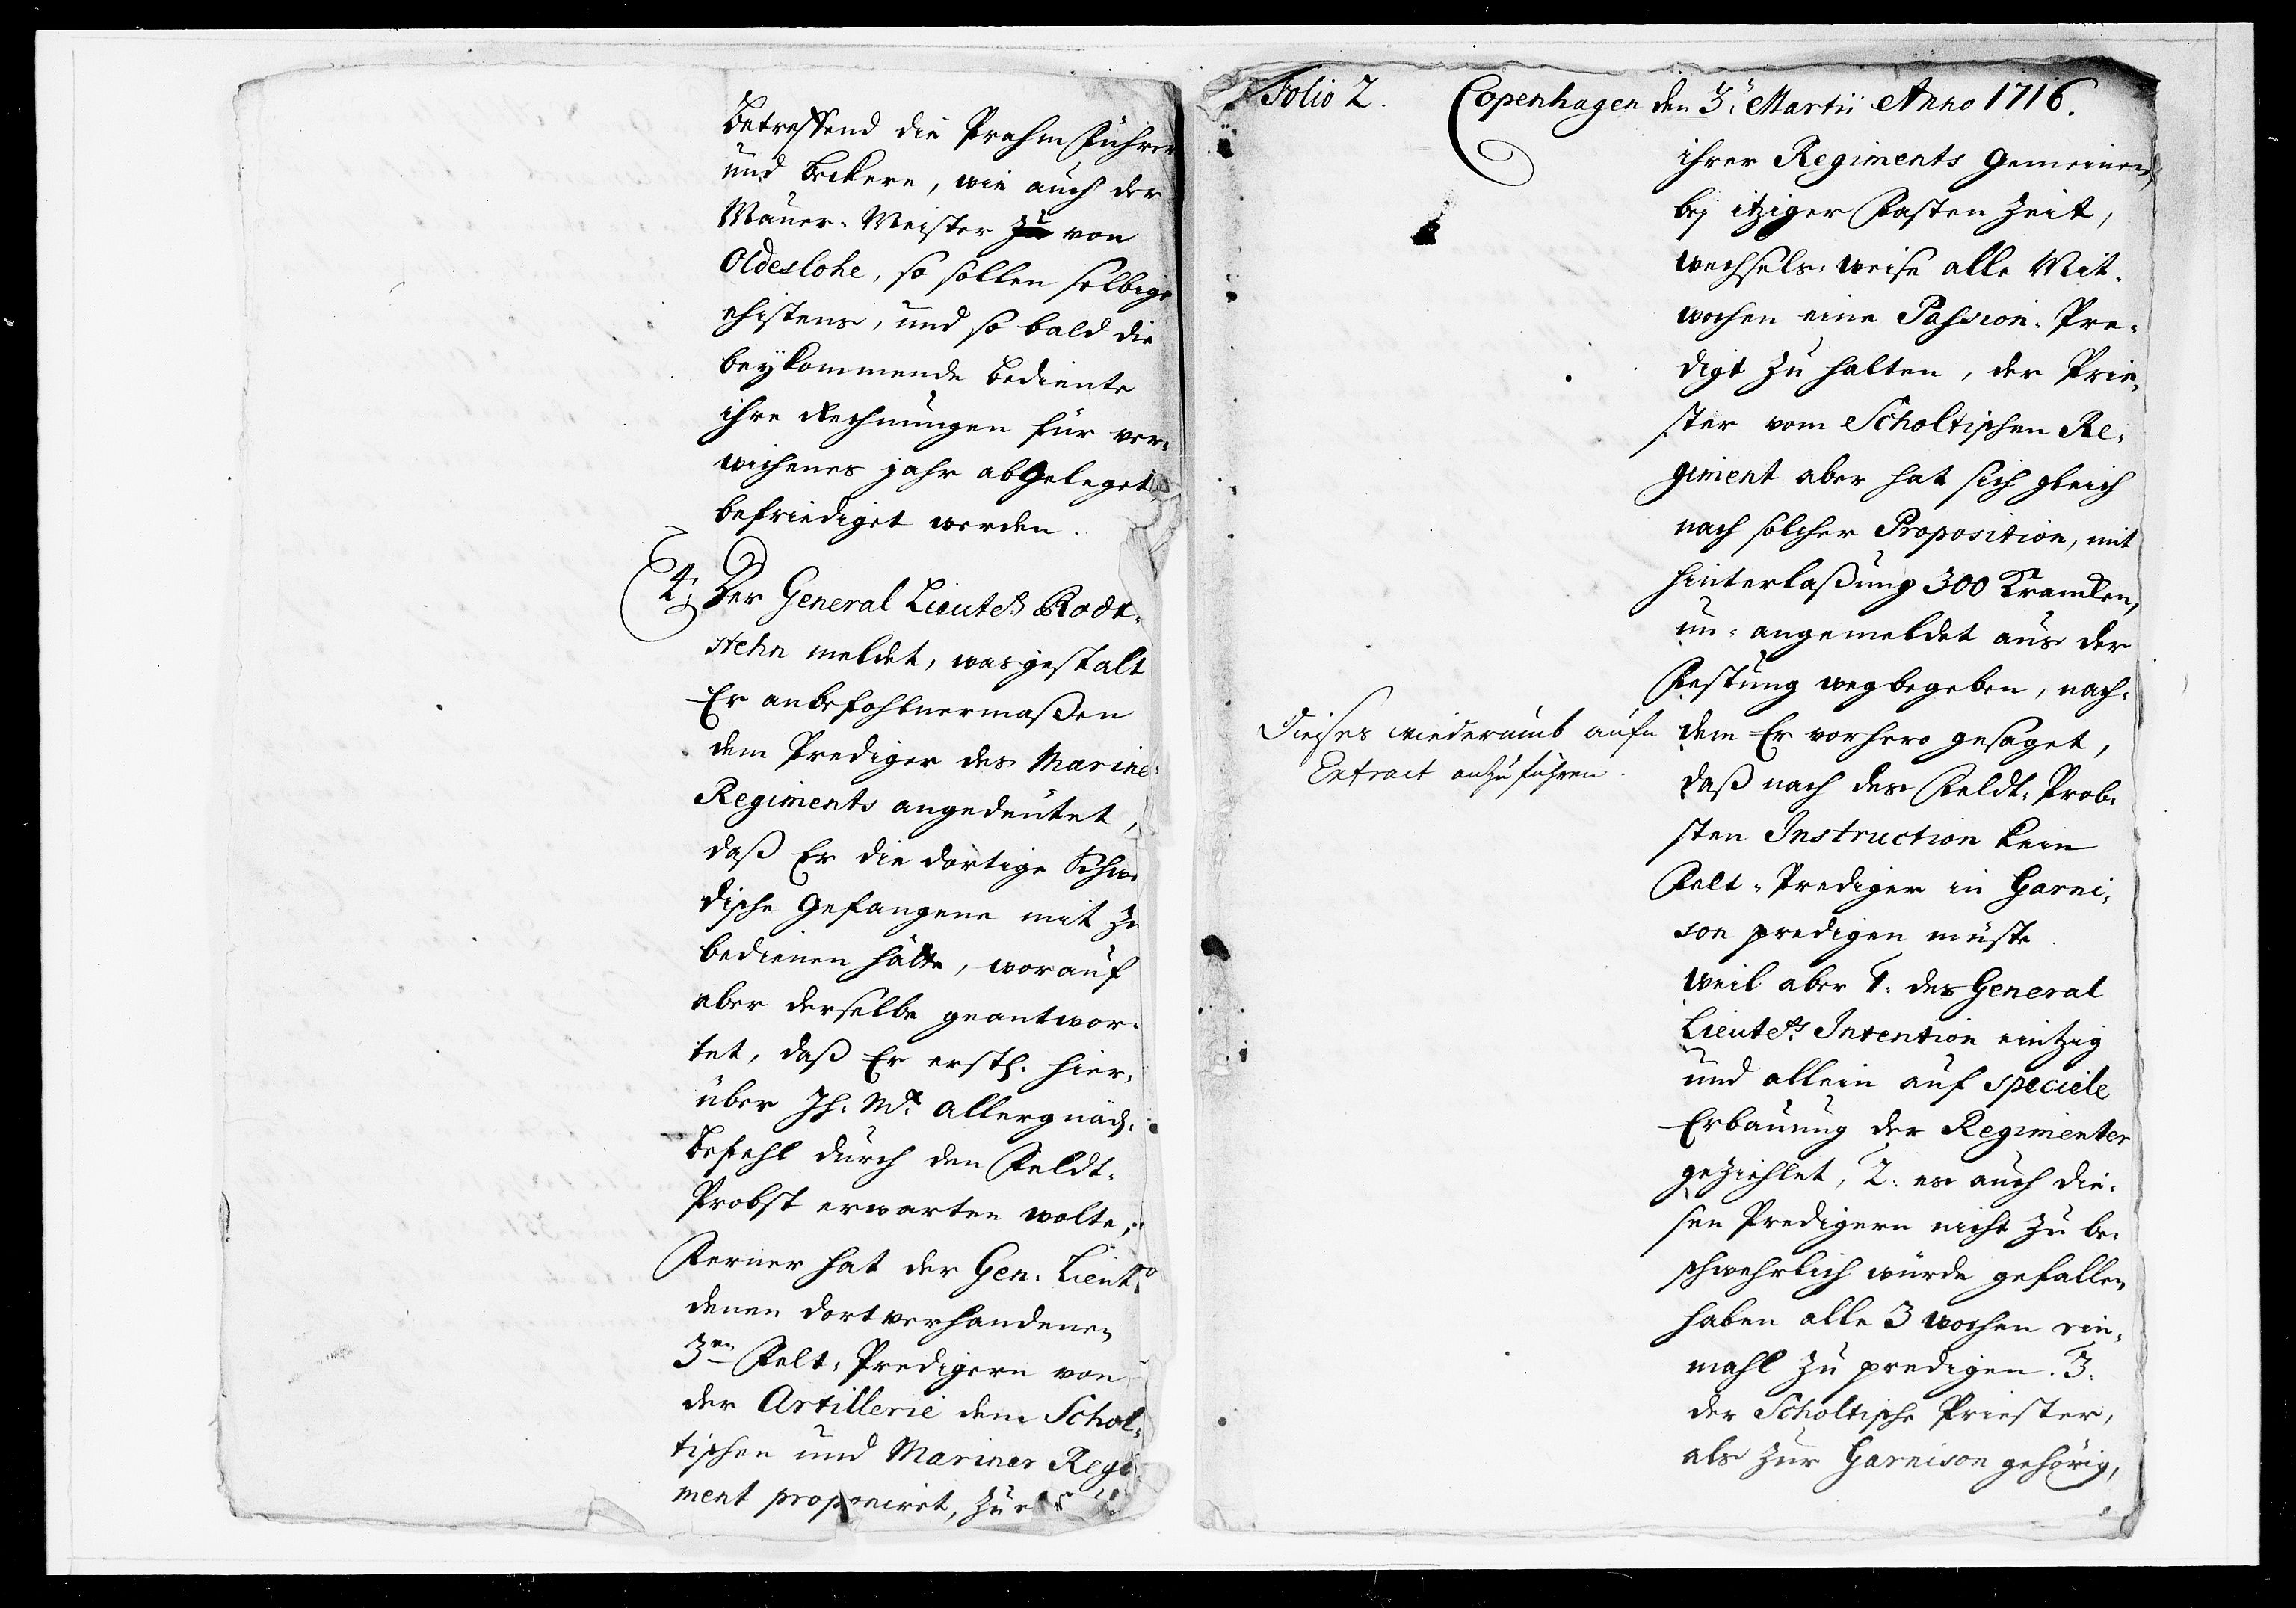 Betreffend die Prahm Führer
und Beckere, wie auch der
Mauer-Meister zu von
Oldeslohe, so sollen selbige
ehistens, und so bald die
beykommende Bediente
ihre Rechnungen für ver-
wichenes jahr abgeleget
befriediget werden.
4. Der General Lieutet Rodt-
stehn meldet, wasgestalt
Er anbefohlnermaßen
dem Prediger des Marine-
Regiments angedeutet,
daß Er die dortige Schwe
dische Gefangene mit zu
bedienen hätte, worauf
aber derselbe geantwor-
tet, daß Er erstl. hier-
über Ih. Mt. allergnäd.
Befehl durch den Feldt-
Probst erwarten wolte;
Ferner hat der Gen. Lieut.
denen dort verhandenen
3en Felt-Predigern von
der Artillerie dem Schol-
tischen und Mariner Regi
ment proponiret, zur
Folio 2. Copenhagen den 3. Martii Anno 1716.
ihrer Regiments Gemeinen,
bej itziger Fasten Zeit,
wechsels-weise alle Mit-
wochen eine Passion-Pre-
digt zu halten, der Prie-
ster vom Scholtischen Re-
giment aber hat sich gleich
nach solcher Proposition, mit
hinterlaßung 300 Krancken,
un-angemeldet aus der
Festung wegbegeben, nach-
Dieses wiederumb aufn
Extract anzuführen.
dem Er vorhero gesaget,
daß nach des Feldt-Prob-
sten Instruction kein
Felt-Prediger in Garni-
son predigen müste.
Weil aber 1. des General
Lieutets Intention eintzig
und allein auf speciele
Erbauung der Regimenter
geziehlet, 2. es auch die-
sen Predigern nicht zu be-
schwehrlich würde gefallen
haben alle 3 Wochen ein-
mahl zu predigen. 3.
der Scholtische Priester,
als zur Garnison gehörig,